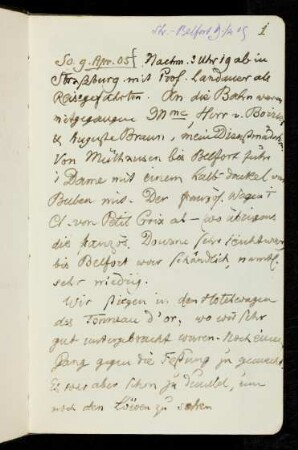 St.-Belfort 9/4 05
1
So. 9. Apr. 05. Nachm. 3 Uhr 19 ab in
Straßburg mit Prof. Landauer als
Reisegefährten. An die Bahn waren
mitgegangen Mme, Herr v.
& Auguste Braun, mein Dienstmädchen
Von Mülhausen bis Belfort fuhr
1 Dame mit einem
Buben mit. Der französ. Wagen I
Cl. von Petit Croix ab – wo übrigens
die französ. Douane sehr leicht war,
bis Belfort war schändlich, namtl.
sehr niedrig.
Wir stiegen in den Hotelwagen
des Tonneau d'or, wo wir sehr
gut untergebracht waren. Noch einen
Gang gegen die Festung zu gemacht,
Es war aber schon zu dunkel, um
noch den Löwen zu sehen